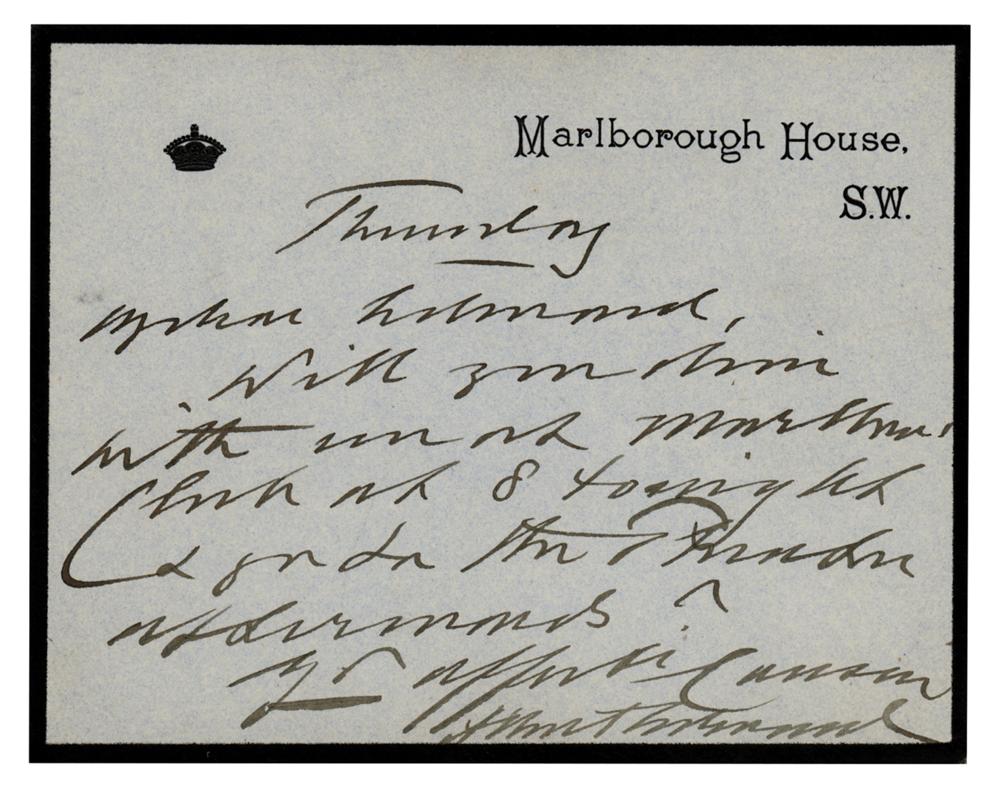 Marlborough House,
S.W.
Thursday
My dear Edward,
Will you dine
with me at Marlbro'
Club at 8 tonight
& go to the Theatre
afterwards?
Yr affect: Cousin